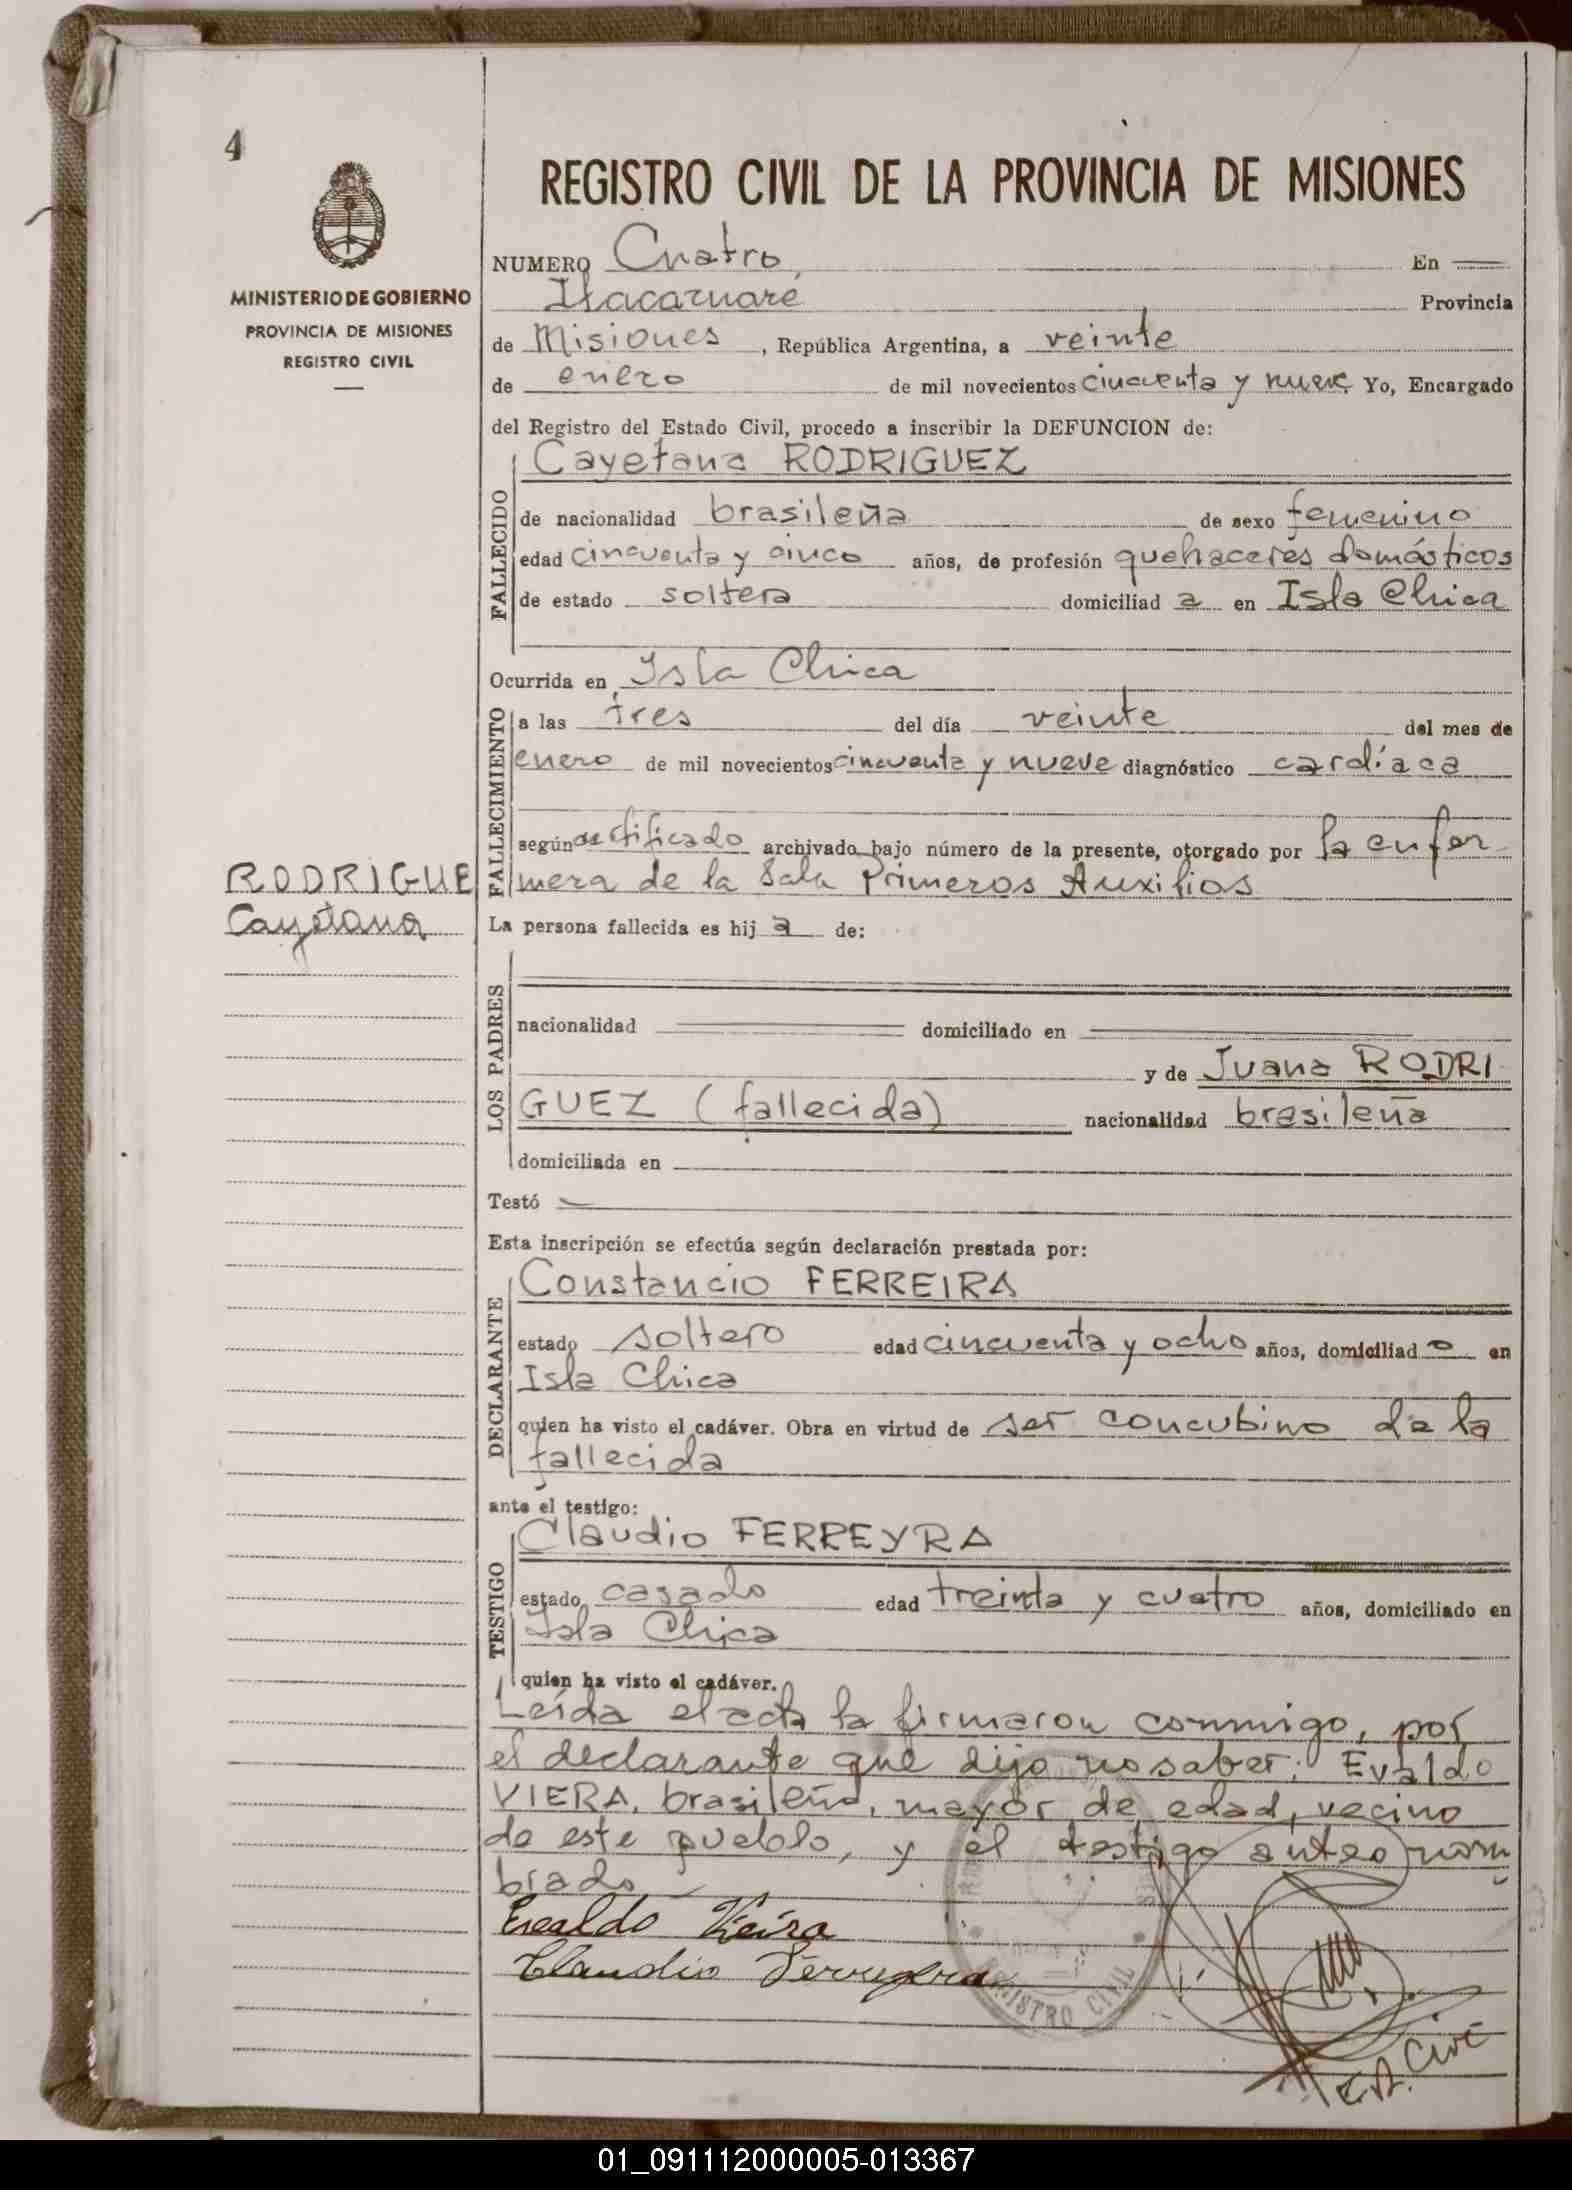 4
MINISTERIO DE GOBIERNO
PROVINCIA DE MISIONES
REGISTRO CIVIL
REGISTRO CIVIL DE LA PROVINCIA DE MISIONES
NUMERO Cuatro, En
Itacaruaré Provincia
de Misiones, República Argentina, a veinte
de enero de mil novecientos cincuenta y nueve Yo, Encargado
del Registro del Estado Civil, procedo a inscribir la DEFUNCION de:
FALLECIDO
Cayetana RODRIGUEZ
de nacionalidad brasileña de sexo femenino
edad cincuenta y cinco años, de profesión quehaceres domésticos
de estado soltera domiciliad a en Isla Chica
Ocurrida en Isla Chica
FALLECIMIENTO
a las tres del día veinte del mes de
enero de mil novecientos cincuenta y nueve diagnóstico cardíaca
según certificado archivado bajo número de la presente, otorgado por la enfer
mera de la Sala Primeros Auxilios
RODRIGUE
Cayetana
La persona fallecida es hij a de:
LOS PADRES
nacionalidad domiciliado en
y de Juana RODRI
GUEZ (fallecida) nacionalidad brasileña
domiciliada en
Testó
Esta inscripción se efectúa según declaración prestada por:
DECLARANTE
Constancio FERREIRA
estado soltero edad cincuenta y ocho años, domiciliad o en
Isla Chica
quien ha visto el cadáver. Obra en virtud de ser concubino de la
fallecida
ante el testigo:
TESTIGO
Claudio FERREYRA
estado casado edad treinta y cuatro años, domiciliado en
Isla Chica
quien ha visto el cadáver.
Leída el acta la firmaron conmigo, por
el declarante que dijo no saber: Evaldo
VIERA, brasileño, mayor de edad, vecino
de este pueblo, y el testigo antes nom
brado
Evaldo Vieira
Claudio Ferreyra
REGISTRO CIVIL
01_091112000005-013367